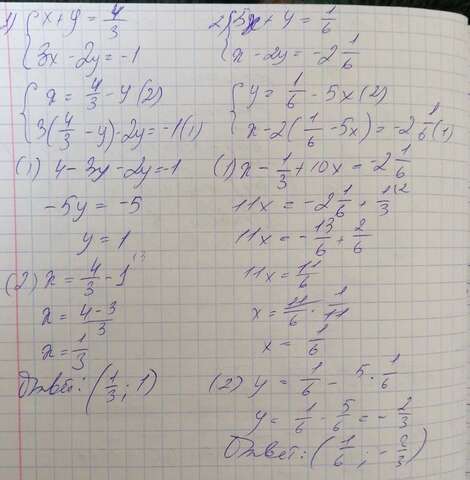 1) { x + y = 4/3
3x - 2y = -1
{ x = 4/3 - y (2)
3(4/3 - y) - 2y = -1 (1)
(1) 4 - 3y - 2y = -1
-5y = -5
y = 1
(2) x = 4/3 - 1
x = 4-3/3
x = 1/3
Ответ: (1/3; 1)
2) { 5x + y = 1/6
x - 2y = -2 1/6
{ y = 1/6 - 5x (2)
x - 2(1/6 - 5x) = -2 1/6 (1)
(1) x - 1/3 + 10x = -2 1/6
11x = -2 1/6 + 1/3
11x = -13/6 + 2/6
11x = 11/6
x = 11/6 · 1/11
x = 1/6
(2) y = 1/6 - 5 · 1/6
y = 1/6 - 5/6 = -2/3
Ответ: (1/6; -2/3)